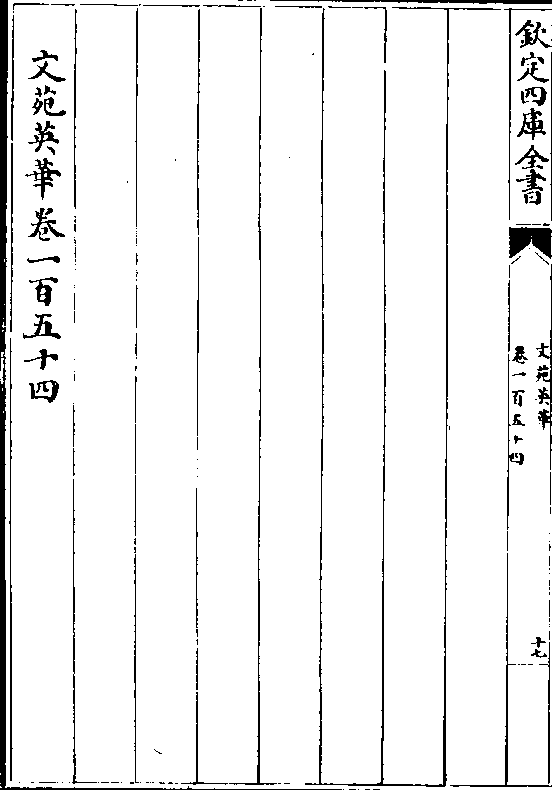 欽定四庫全書
文苑英華
卷一百五十四
十七
文苑英華卷一百五十四